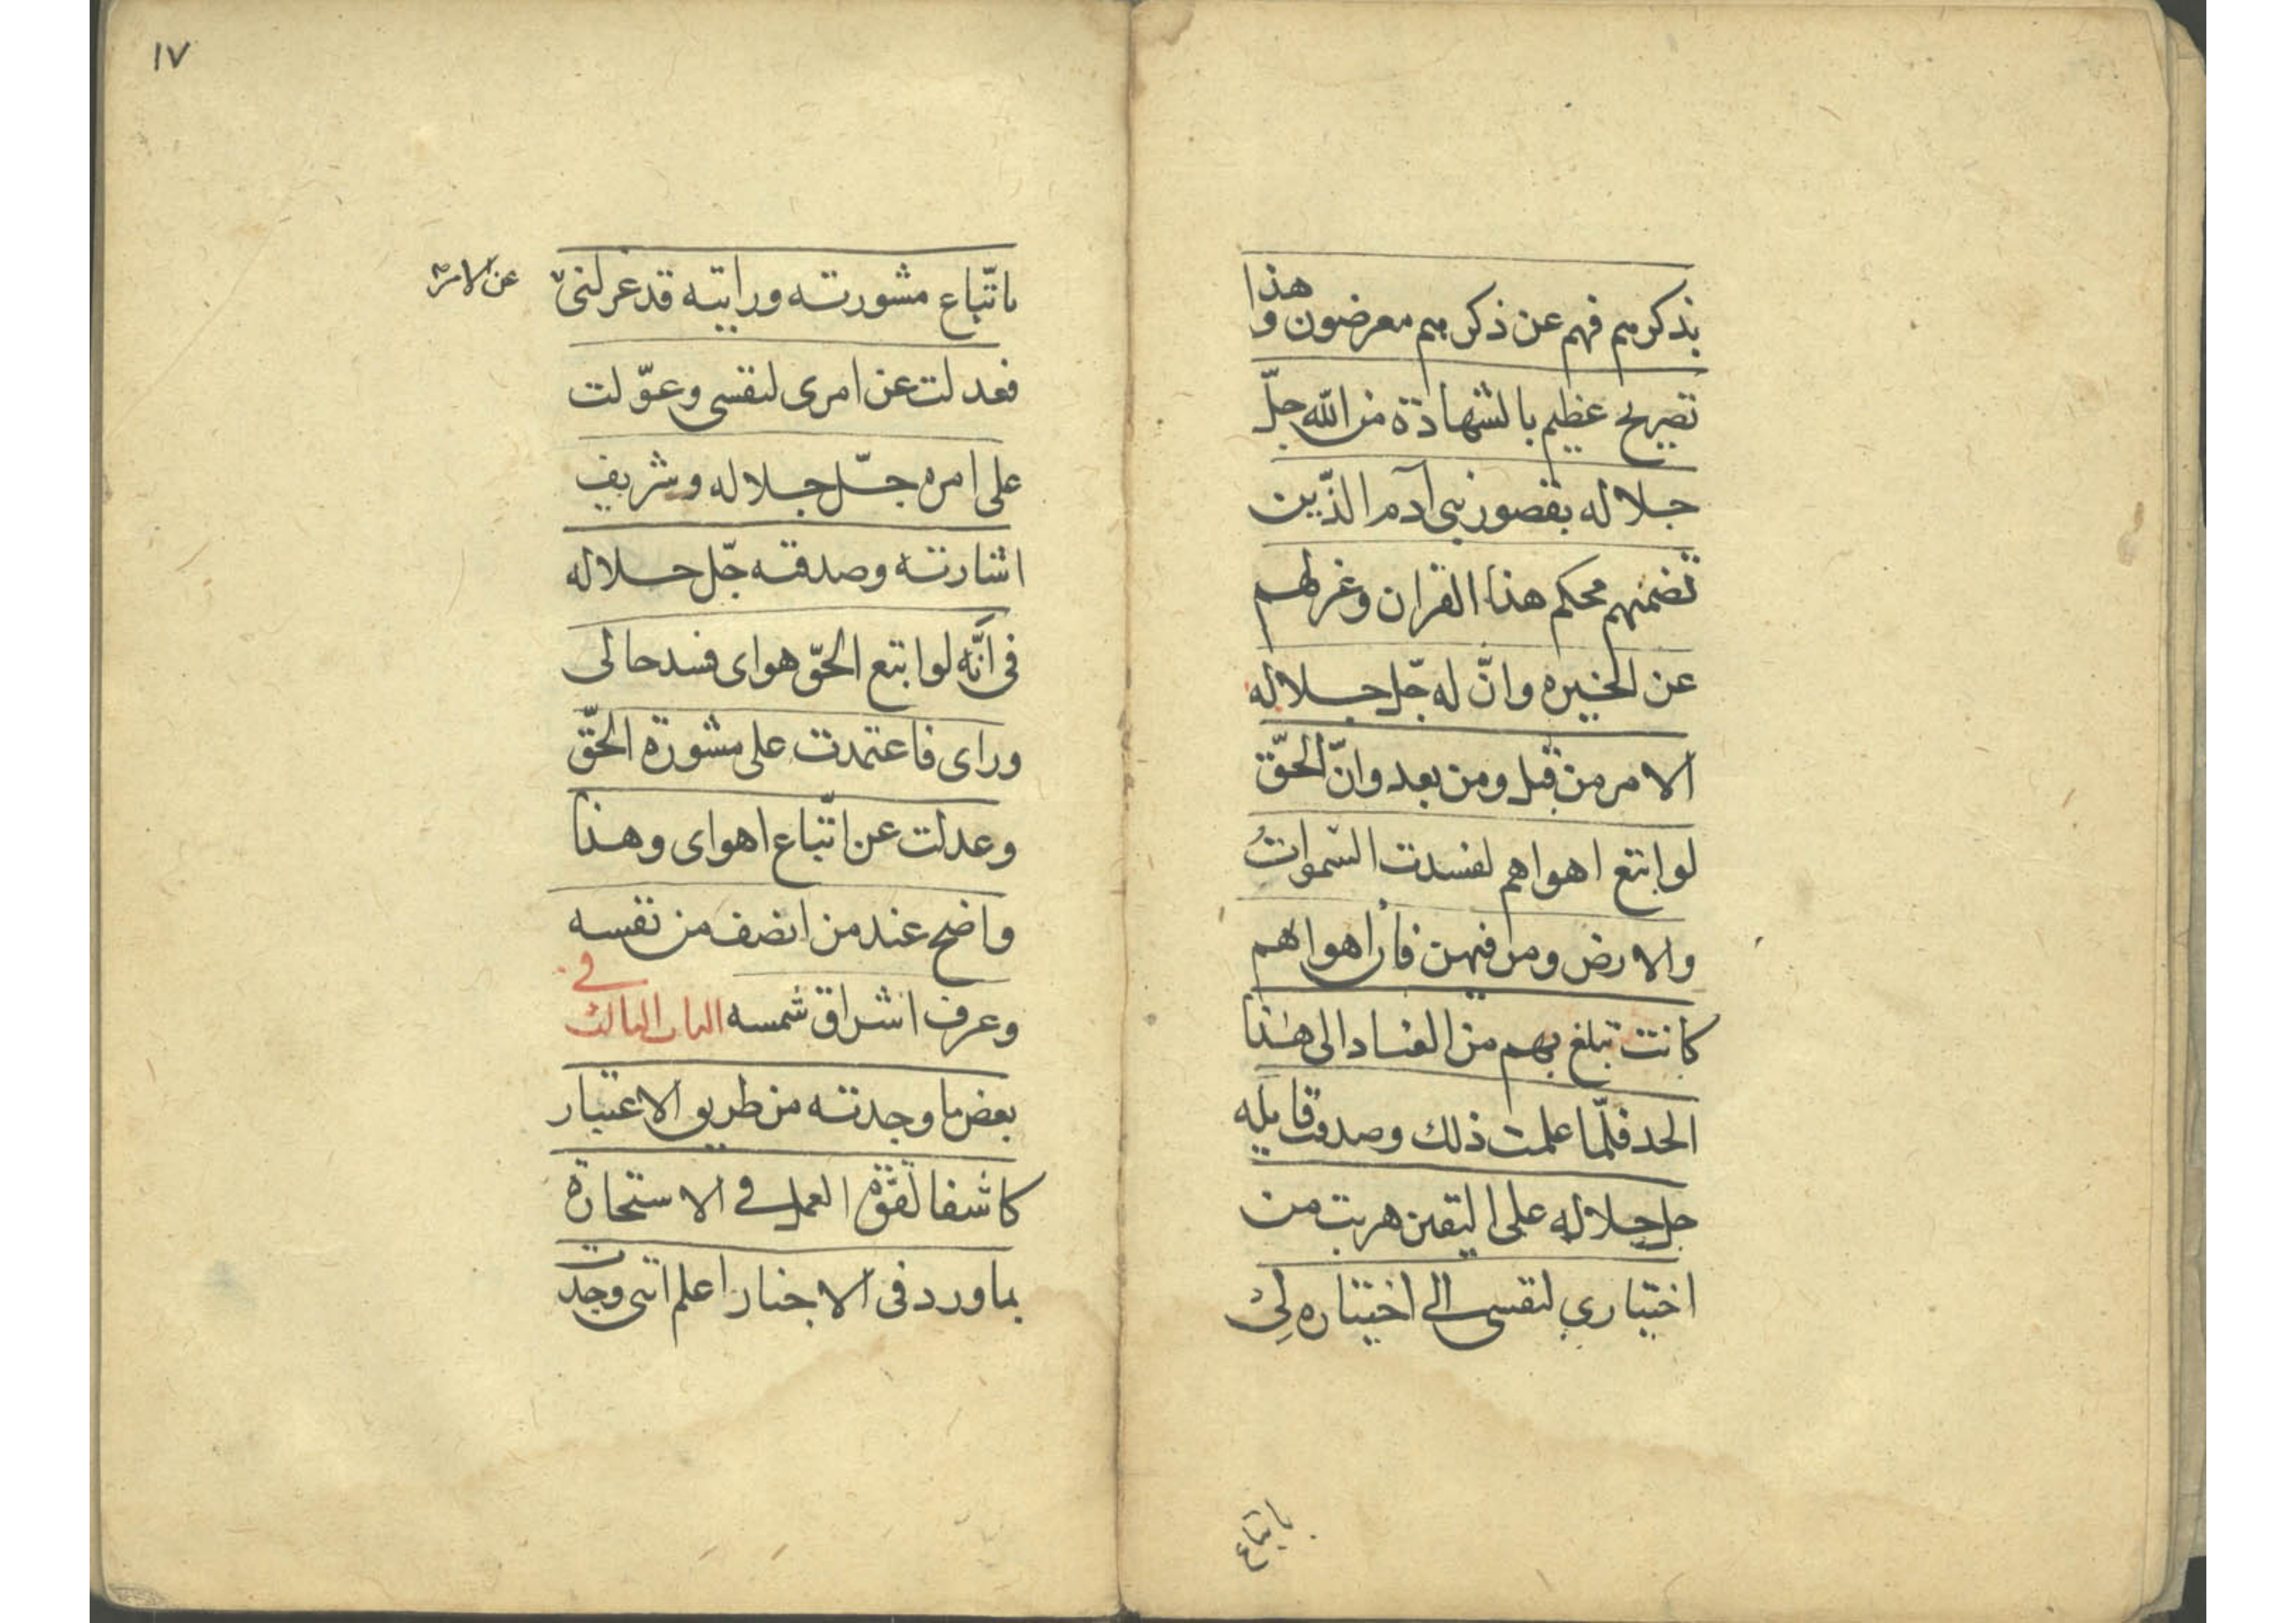 بذكرهم فهم عن ذكرهم معرضون وهذا
تصريح عظيم بالشهادة من الله جلّ
جلاله بقصور بنى آدم الذّين
تضمنهم محكم هذا القران وعزلهم
عن الخيره وانّ له جلّ جلاله
الامر من قبل ومن بعد وانّ الحقّ
لو اتبع اهواهم لفسدت السّموات
والارض ومن فيهن فان اهواهم
كانت تبلغ بهم من الفساد الى هذا
الحد فلمّا علمت ذلك وصدقت قايله
جل جلاله على اليقين هربت من
اختياري لنفسى الى اختياره لي
باتباع
١٧
باتّباع مشورته ورايته قد عزلنى
عن الامر
فعدلت عن امرى لنفسى وعوّلت
على امره جلّ جلاله وشريف
اشارته وصدقته جلّ جلاله
فى انّه لو اتبع الحقّ هواى فسد حالى
وراى فاعتمدت على مشورة الحقّ
وعدلت عن اتّباع اهواى وهذا
واضح عند من انصف من نفسه
وعرف اشراق شمسه الباب الثالث في
بعض ما وجدته من طريق الاعتبار
كاشفا لقوّة العمل في الاستخارة
بما ورد فى الاخبار اعلم اننى وجدت